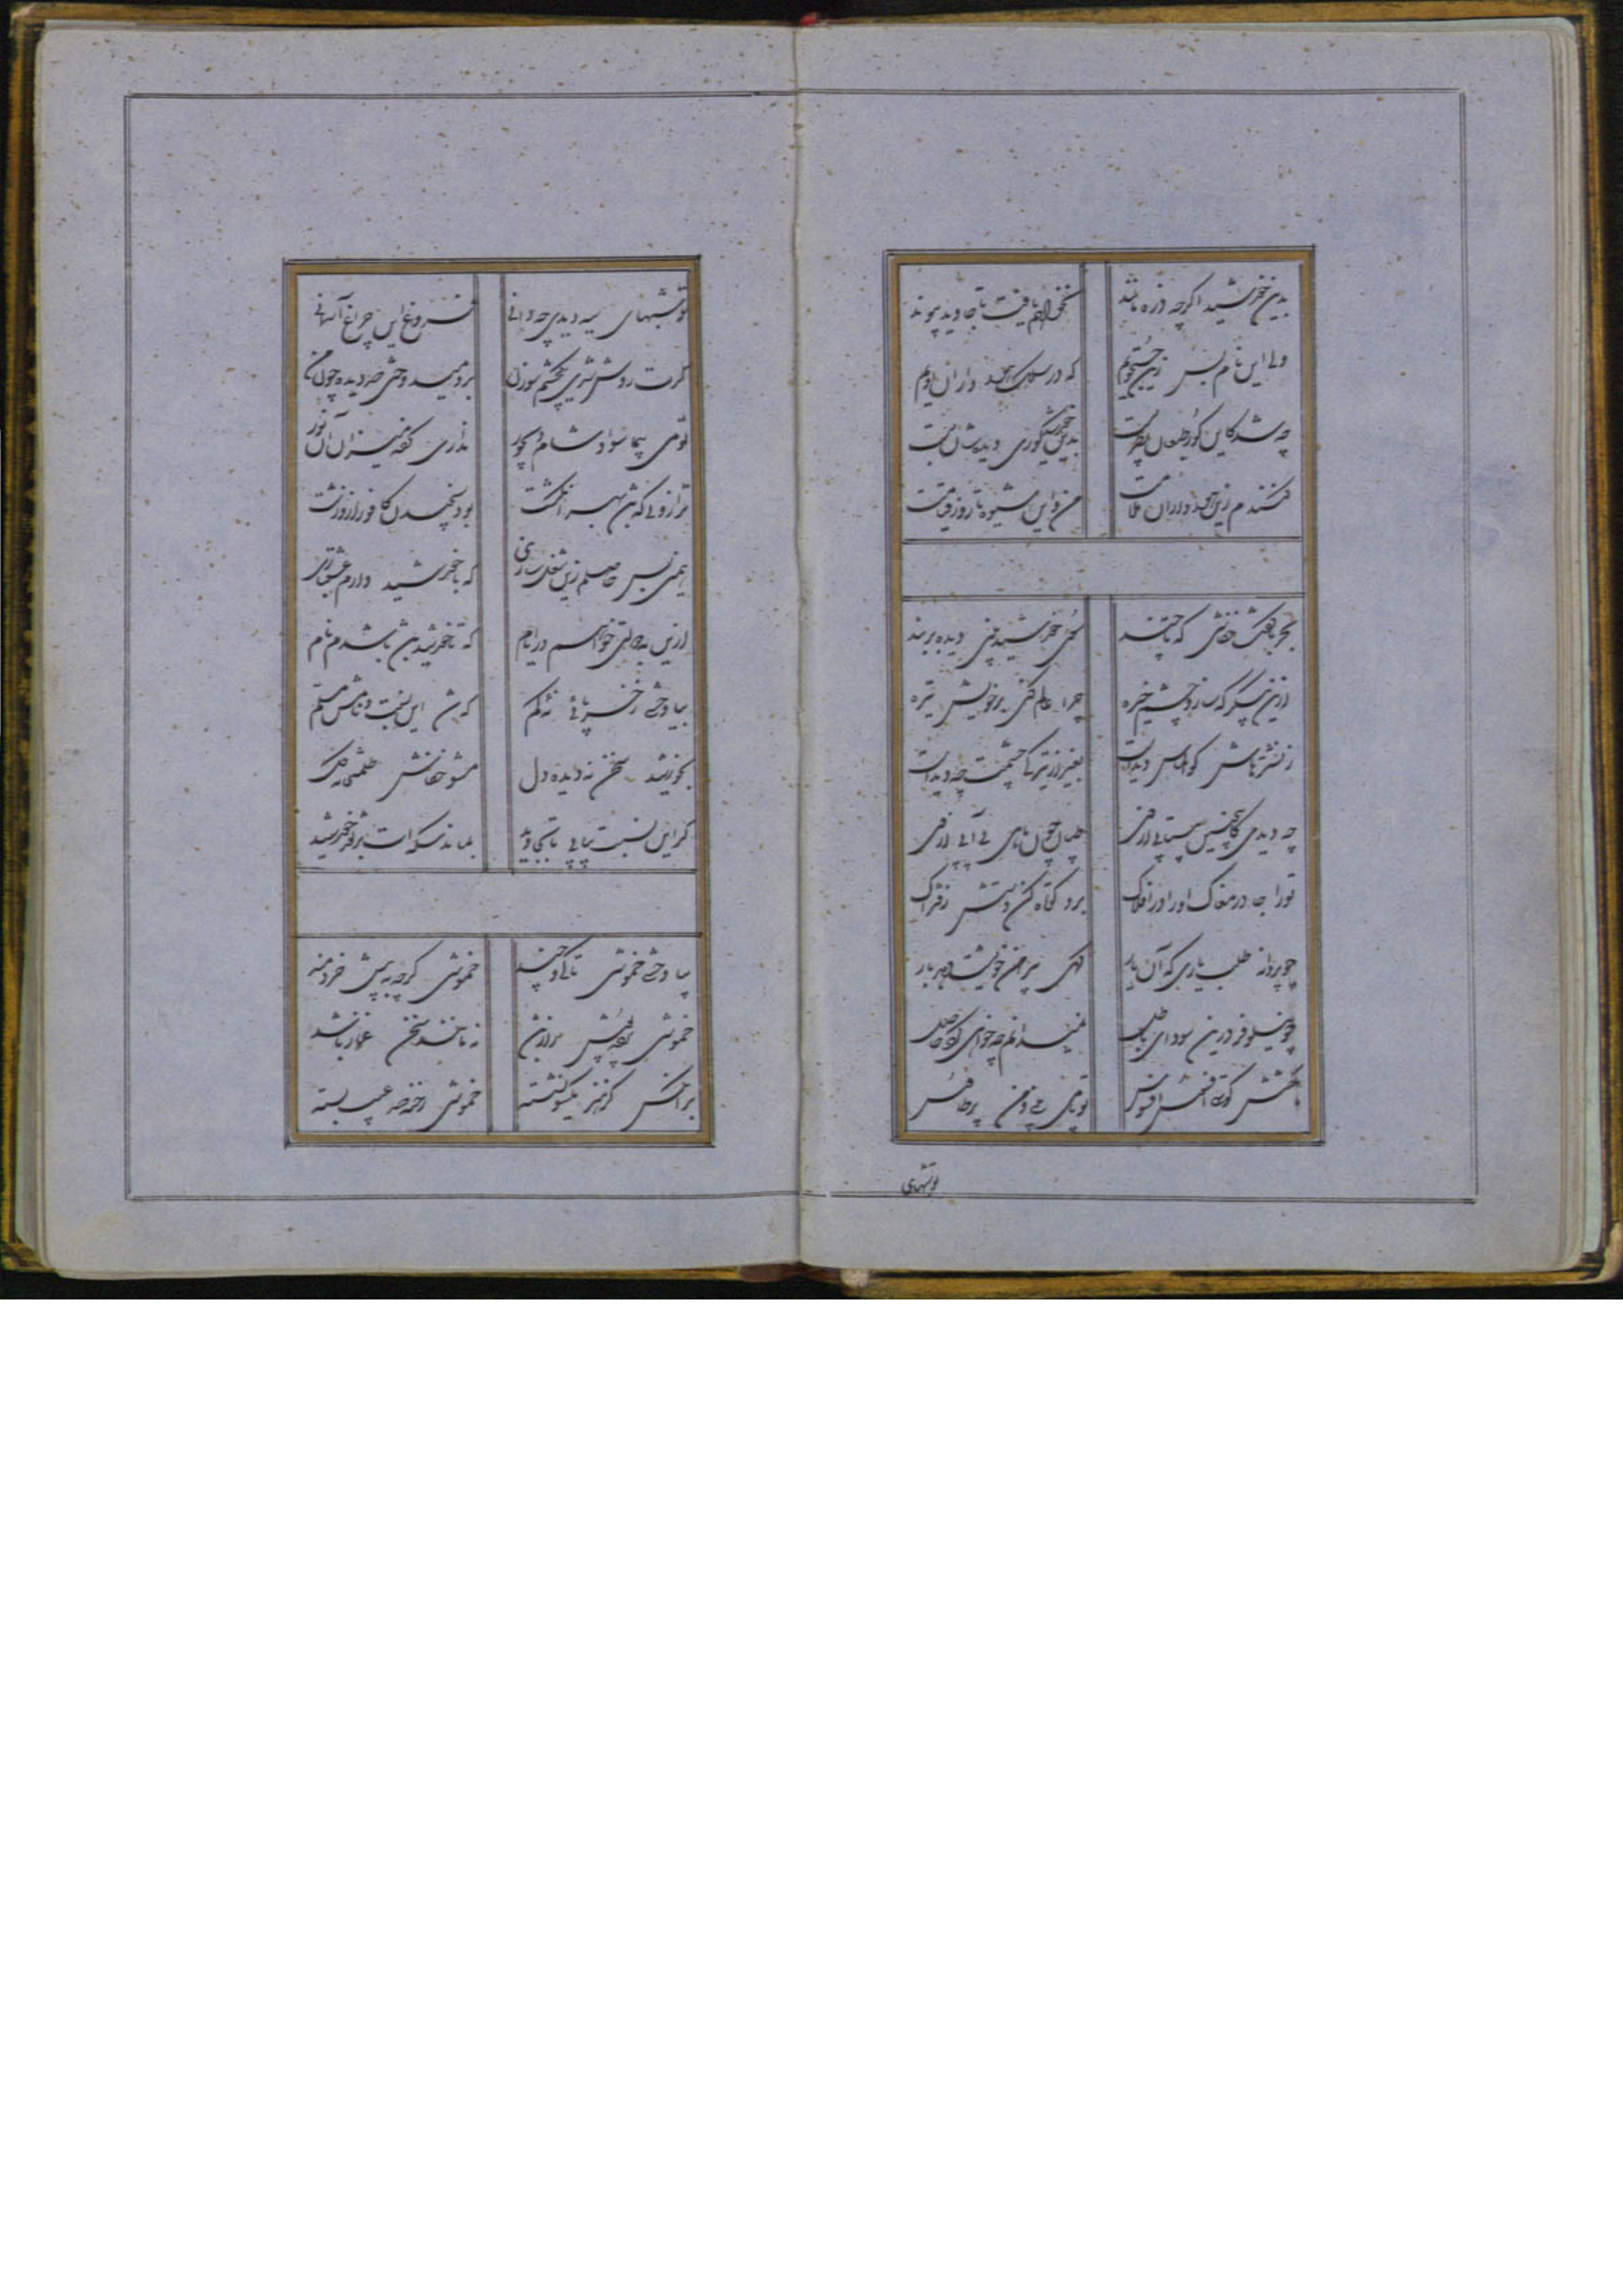 بدین خورشید اگرچه ذره مانند
نخواهم یافت تا جاوید پیوند
ولی این نام بس زین جستجویم
که در سلک هواداران اویم
چه شد کاین کور طبعان نظرپست
بدین خورشید کوری دیده‌شان بست
کنندم زین هواداران ملامت
من و این شیوه تا روز قیامت
بحربا گفت خفاشی که تا چند
سوی خورشید بینی دیده بربند
ازین پیکر که سازد چشم خیره
چرا عالم کنی بر خویش تیره
ز نشترهاش کالماس دیدست
بغیر از تیرگی چشمت چه دیدست
چه دیدی کاینچنین بیتابی از وی
طپان چون ماهی بی آبی از وی
تو را جا در مغاک او را در افلاک
برو کوتاه کن دستش ز فتراک
چو پروانه طلب یاری که آن یار
گهی پیرامن خویشت دهد بار
چو نیلوفر درین سودای باطل
نمیدانم چه خواهی کرد حاصل
بگفتش کوتهی افسوس افسوس
تو پای می‌ و من پر طاوس
توشبهای
توشبهای سیه دیدی چه دانی
فروغ این چراغ آسمانی
گرت روشن شدی یک چشم سوزن
بر او میدوختی صد دیده چون من
تویی پیما سواد شام دیجور
نداری کفه میزان آن نور
ترازویی که باشد بهر انگشت
بود سنجیدن کافور ازو زشت
همین بس حاصلم زین شغل سازی
که با خورشید دارم عشقبازی
ازین به دولتی خواهم در ایام
که با خورشید باشد نام
بیا وحشی ز حربایی نه‌ای کم
که شد این نسبت و نامش مسلم
بخورشید سخن نه دیده دل
مشو خفاش ظلمت
گر این نسبت بیابی تا بجاوید
بماند سکه ات بر نقد خورشید
بیا وحشی خموشی تا کی و چند
خموشی گرچه به پیش خردمند
خموشی پرده‌پوش راز باشد
نه مانند سخن غماز باشد
بر آن کس کز هنر یکسو نشسته
خموشی رخنه صد عیب بسته